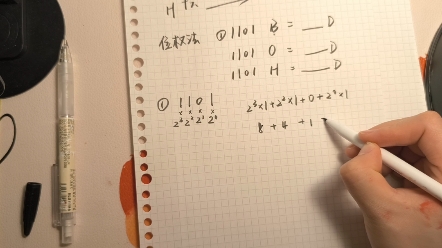 位权法 ① 1101 B = ___ D
1101 O = ___ D
1101 H = ___ D
① 1 1 0 1
× × × ×
2³ 2² 2¹ 2⁰
2³×1+2²×1+0+2⁰×1
8 + 4 + 1